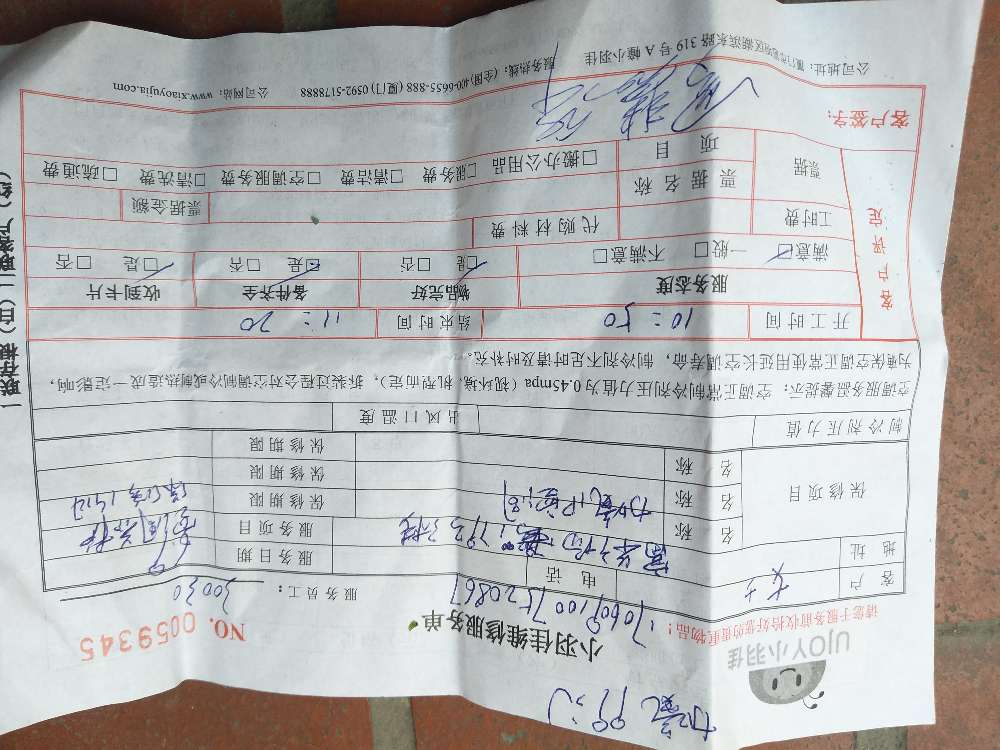 UJOY小羽佳
请您于服务前收拾好您的贵重物品！
小羽佳维修服务单
NO. 0059345
服务员工： 30030
客户
电话
服务日期
地址
服务项目
保修项目
名称
保修期限
名称
保修期限
名称
保修期限
制冷剂压力值
出风口温度
空调服务温馨提示：空调正常制冷剂压力值为0.45mpa（视环境、机型而定），拆装过程会对空调制冷或制热造成一定影响，
为确保空调正常使用延长空调寿命，制冷剂不足时请及时补充。
开工时间 10:50 结束时间 11:20
客户评定
服务态度 物品完好 备件齐全 收到卡片
满意 一般 不满意 是 否 是 否 是 否
工时费 代购材料费
票据 票据名称 票据金额
项目 搬办公用品 服务费 清洁费 空调服务费 清洗费 疏通费
客户签字：
公司地址：厦门市思明区湖滨东路 319 号 A 幢小羽佳 服务热线：(全国)400-0655-888 (厦门) 0592-5178888 公司网站：www.xiaoyujia.com
一联存根（白）二联客户（红）